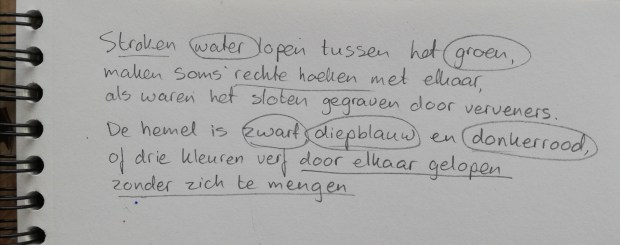 Stroken water lopen tussen het groen,
maken soms rechte hoeken met elkaar,
als waren het sloten gegraven door verveners.
De hemel is zwart, diepblauw en donkerrood,
of drie kleuren verf door elkaar gelopen
zonder zich te mengen